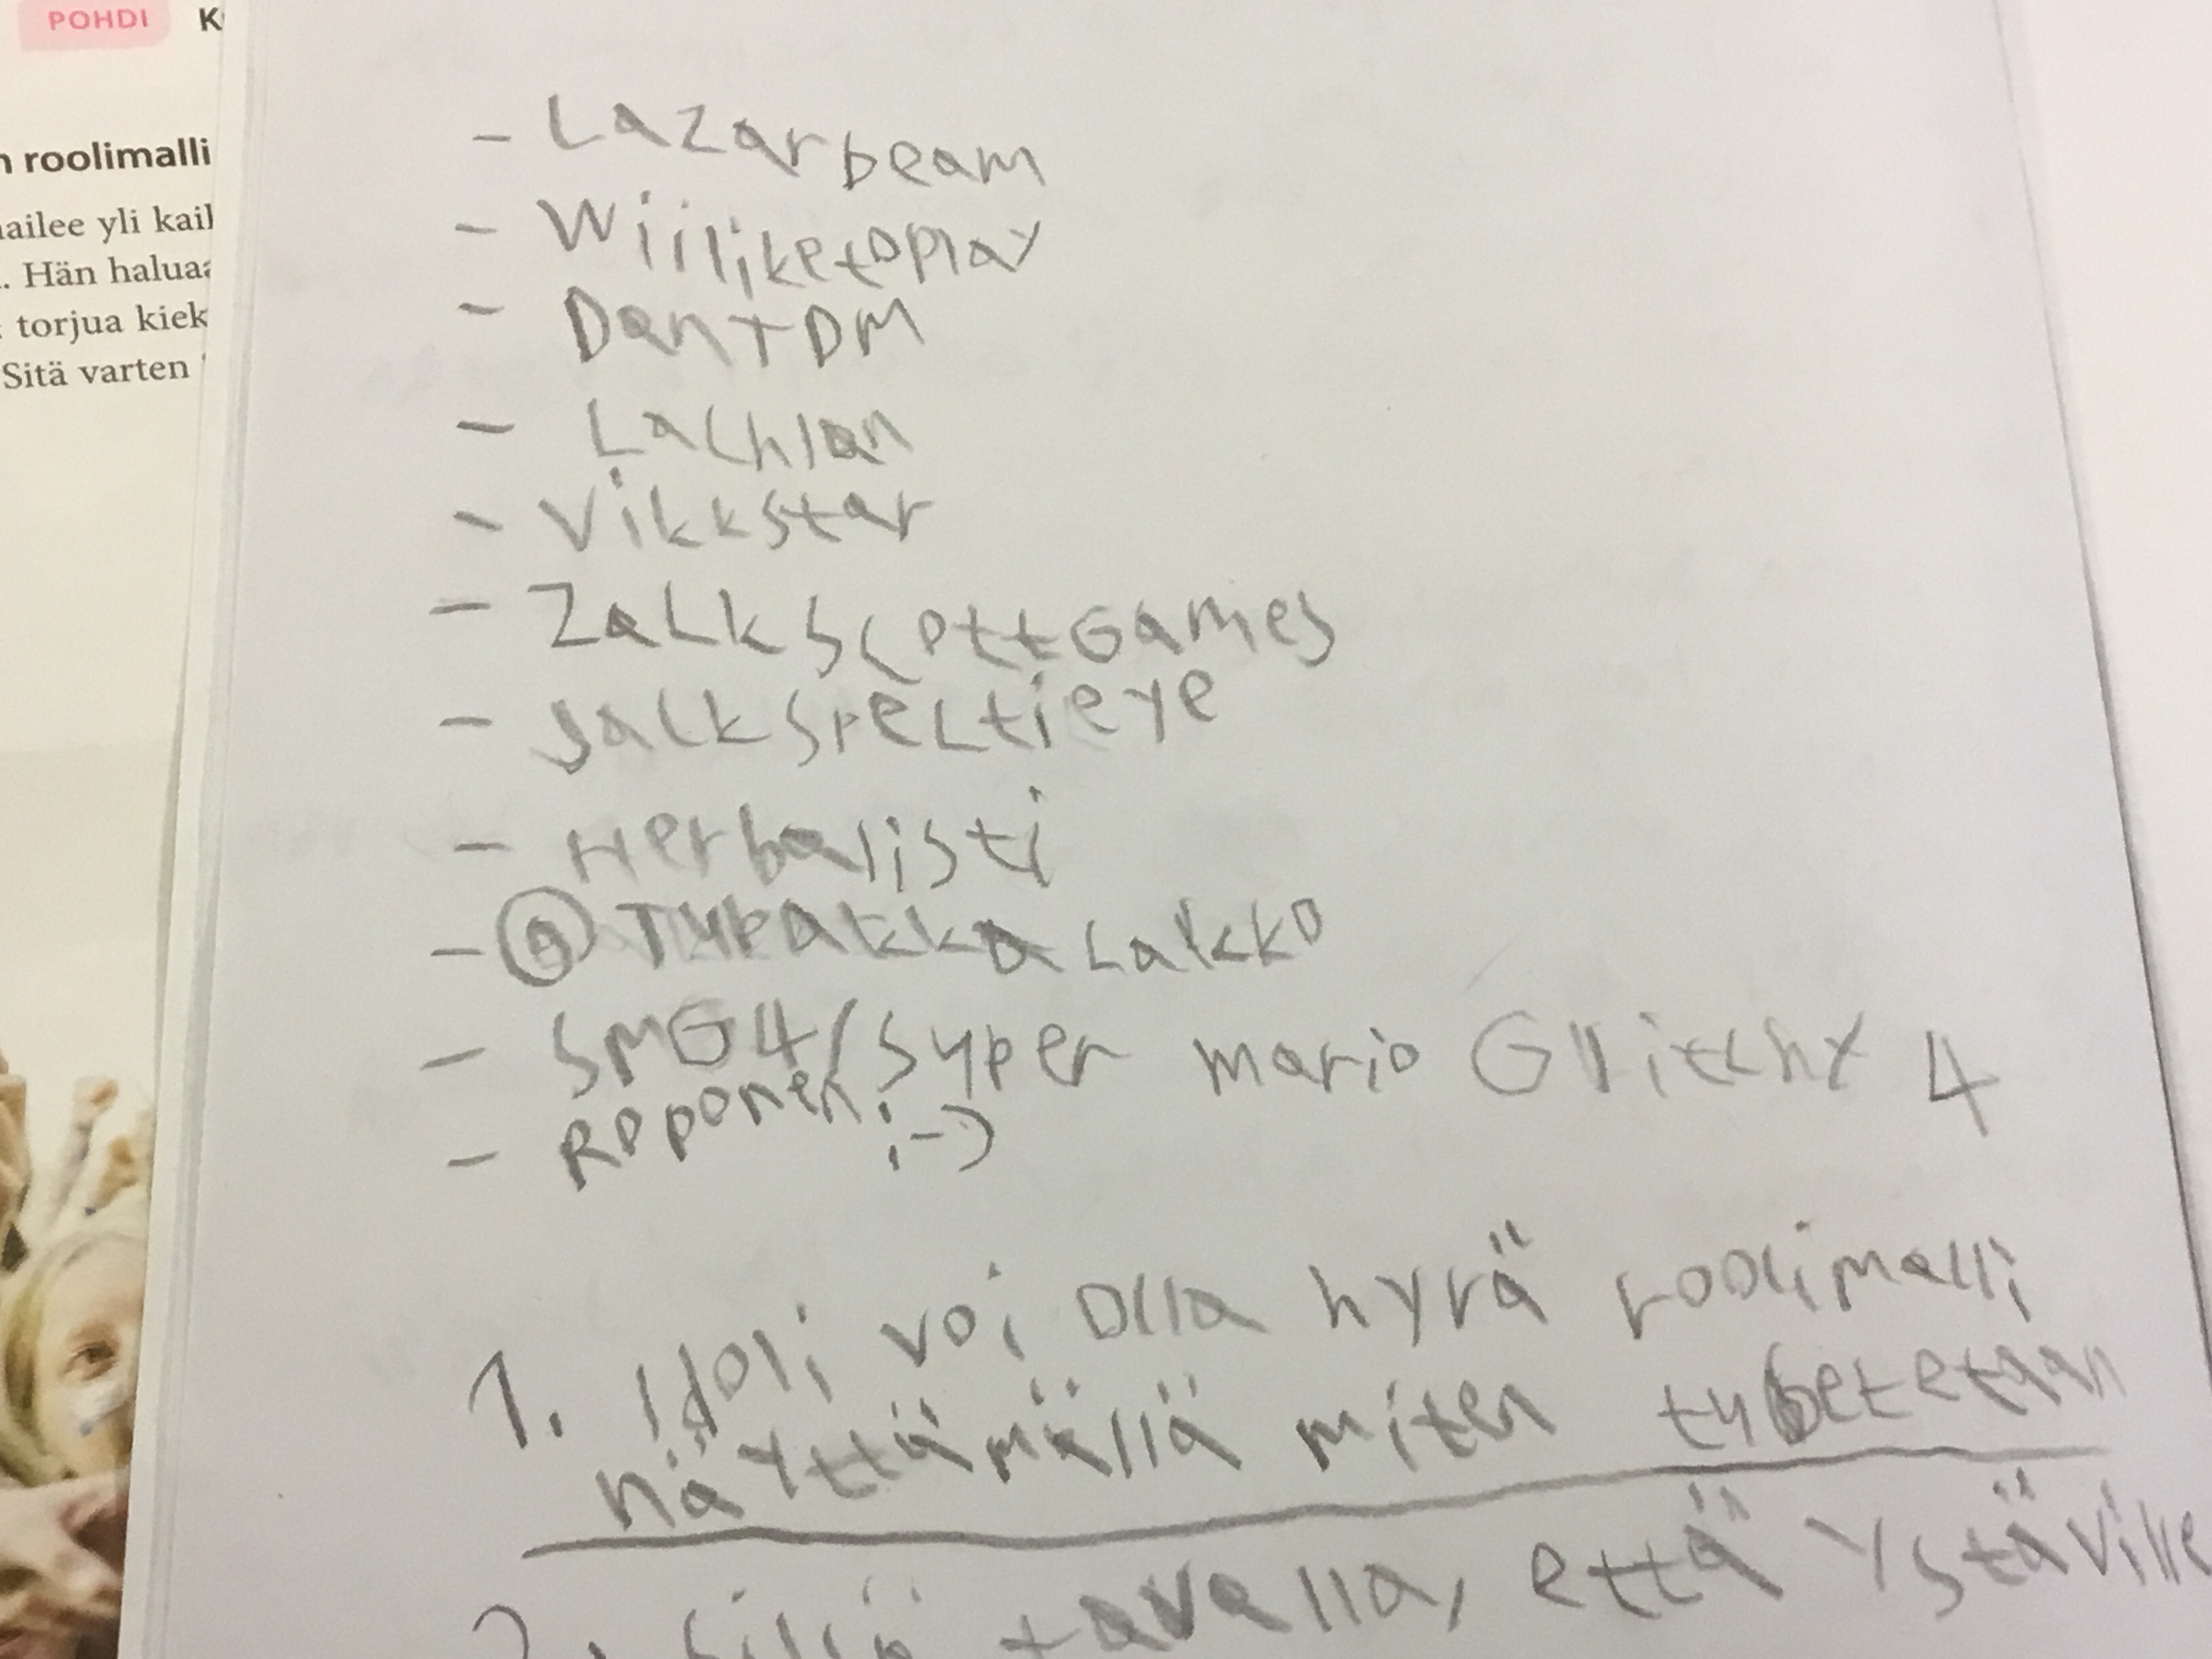 POHDI K
n roolimalli
ailee yli kail
. Hän haluaa
torjua kiek
Sitä varten
- Lazarbeam
- Wiiliketoplay
- DanTDM
- Lachlan
- Vikkstar
- ZackscottGames
- Jacksepcticeye
- Herbalisti
- @ TupakkaLakko
- SMG4/Syper mario Glitchy 4
- Roponen :-)
1. Idoli voi olla hyvä roolimalli
näyttämällä miten tubetetaan
2. sillä tavalla, että ystäville